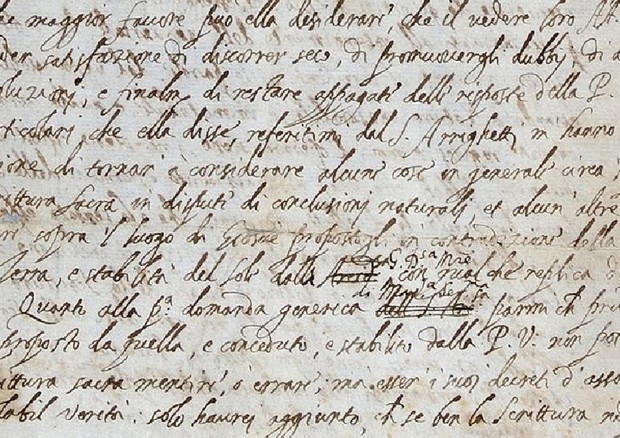 he maggior favore può ella desiderare, che il vedere loro Alt
der satisfazione di discorrer seco, di promuovergli dubbij, di a
oluzionj, e finalm.e di restare appagati delle risposte della P.
rticolari che ella disse, referitimi dal S. Arrighetti m hanno
ione di tornar' à considerare alcune cose in generale circa i
rittura sacra in dispute di conclusionj naturalj, et alcun' altre
re sopra il luogo di Giosue propostogli in contradizione della
Terra, e stabilità del Sole dalla G. D.a M.re con qualche replica d
Quanto alla p.a domanda generica di Mad.a Ser.ma parmi ch pru
proposto da quella, e conceduto, e stabilito dalla P. V. non pot
ittura sacra mentire, ò errare, mà esser' i suoi decreti d' asso
labil verità. solo haurej aggiunto, ch se ben la Scrittura no